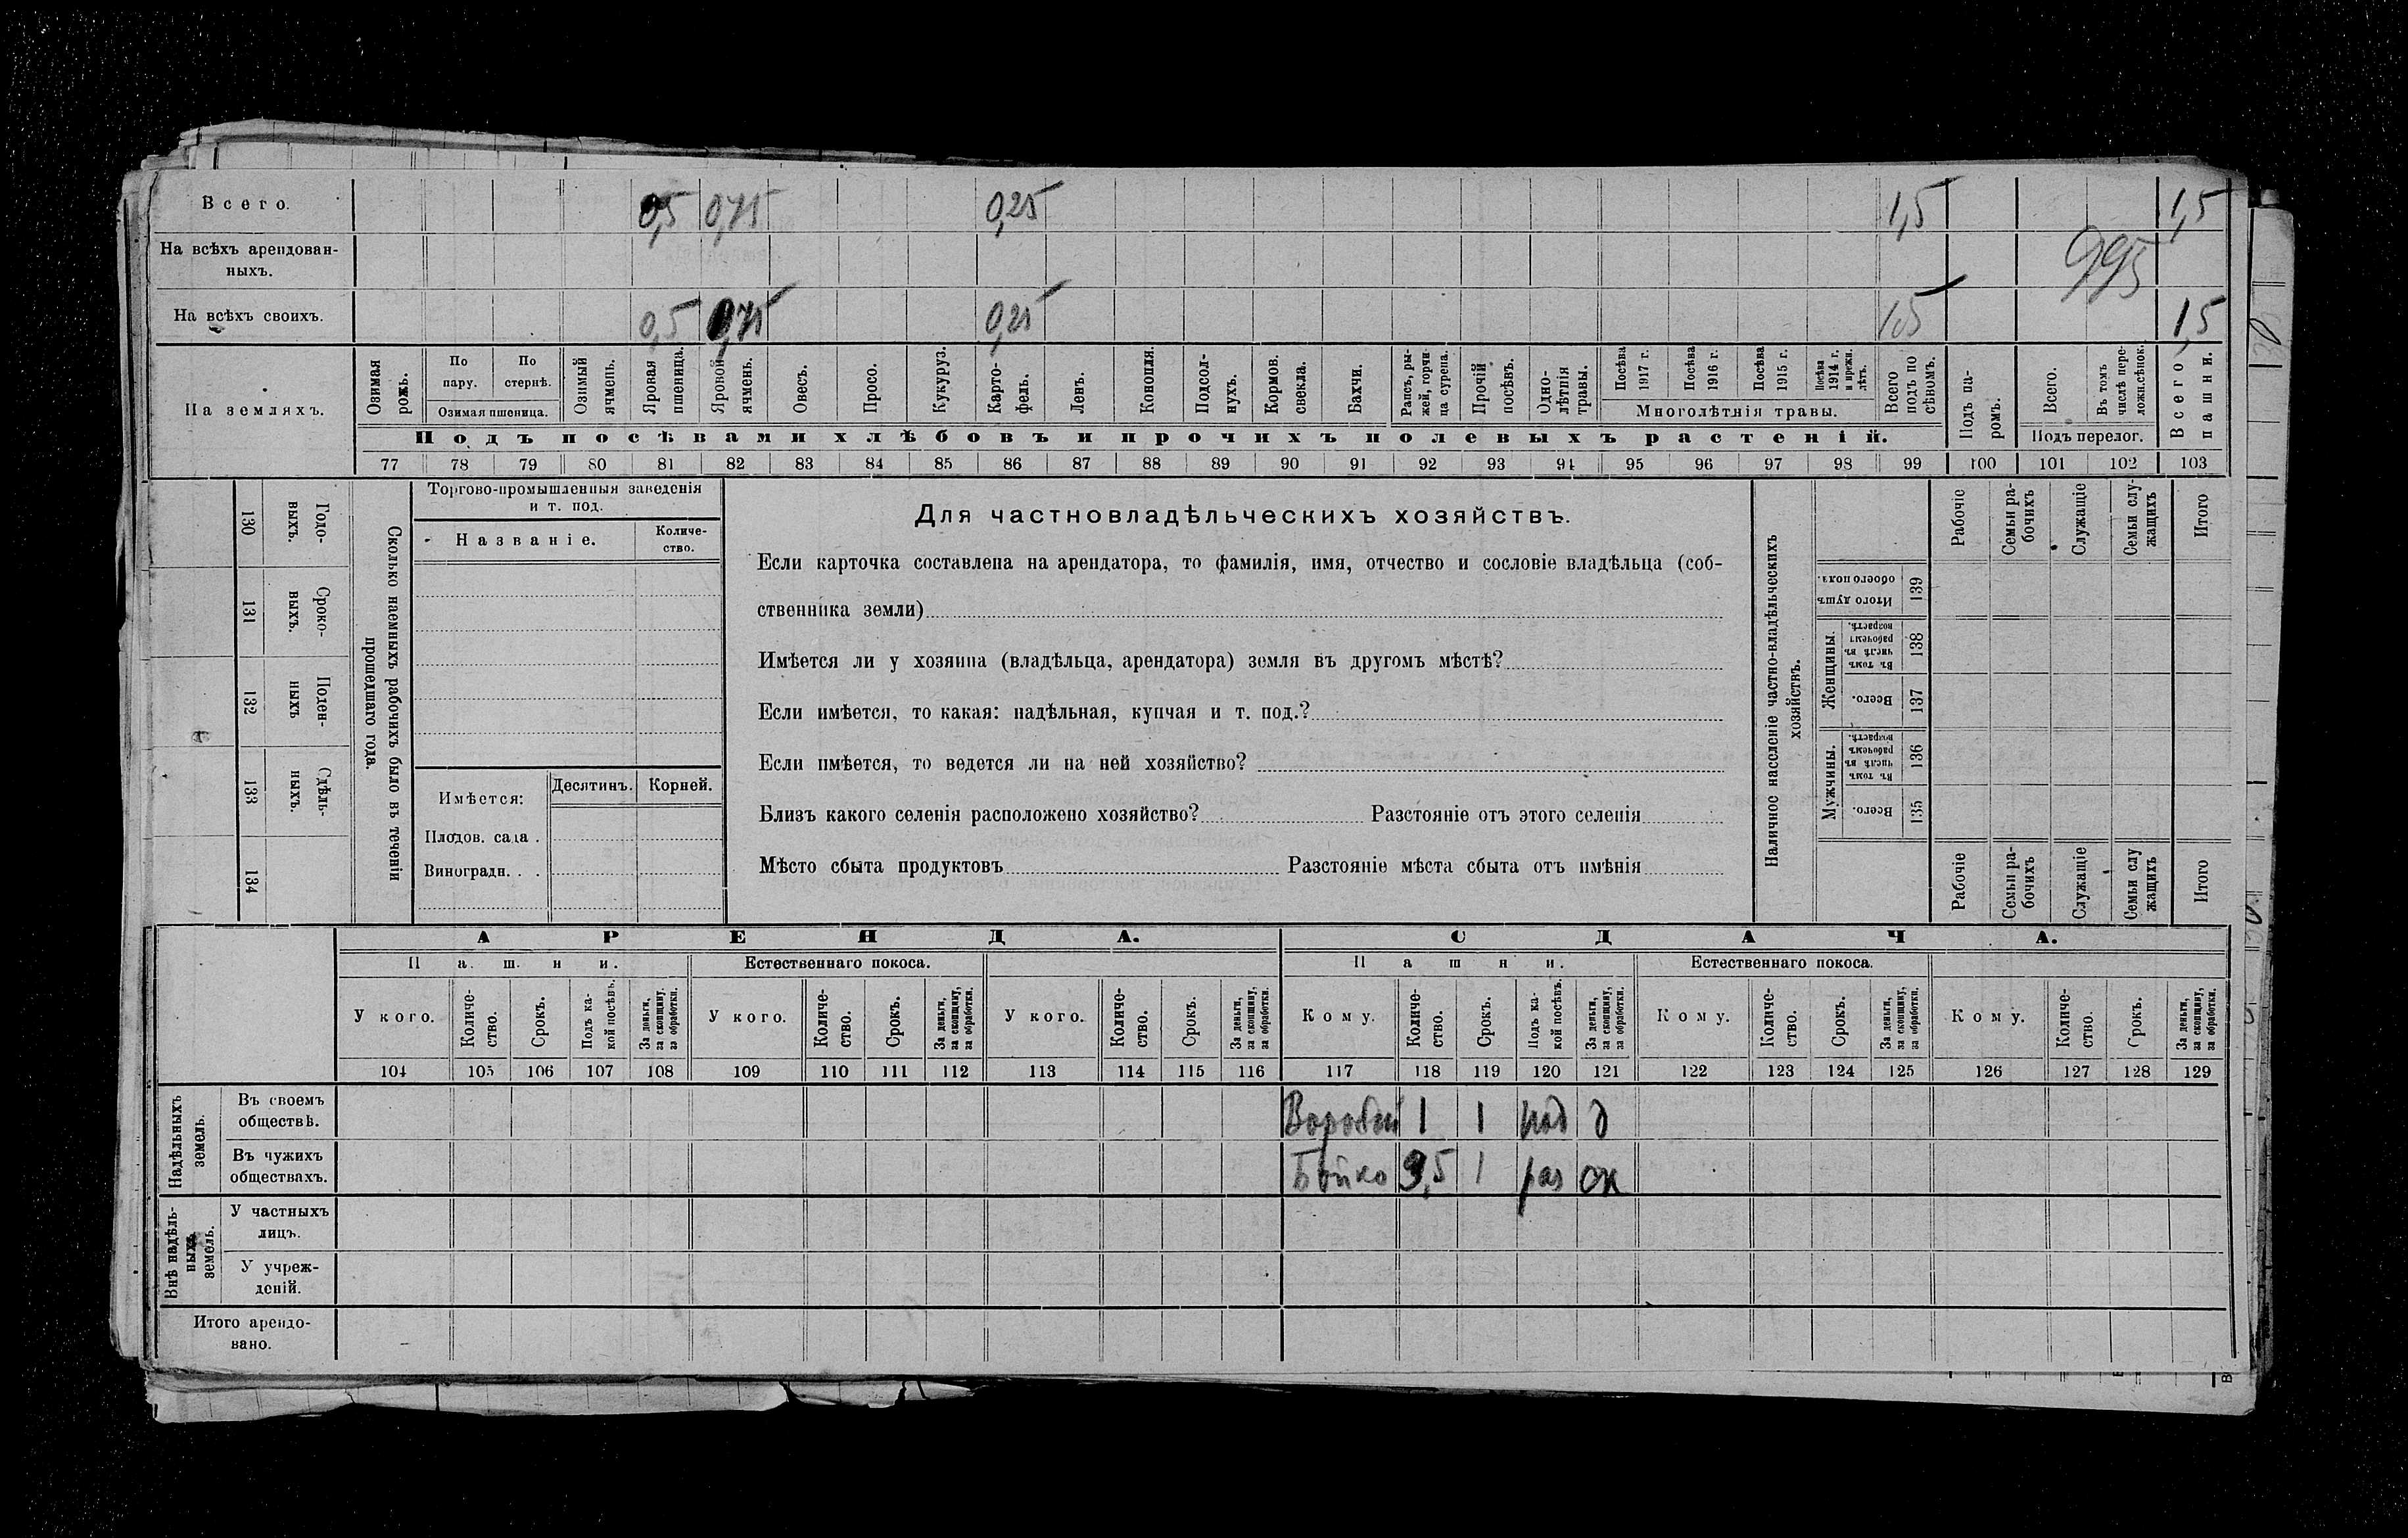 Всего. 0,5 0,75 0,25 1,5 1,5
На всѣхъ арендован-
ныхъ. 995
На всѣхъ своихъ. 0,5 0,75 0,25 1,5 1,5
На земляхъ.
Озимая рожь.
По пару.
По стернѣ.
Озимая пшеница.
Озимый ячмень.
Яровая пшеница.
Яровой ячмень.
Овесъ.
Просо.
Кукуруз.
Карто-
фель.
Ленъ.
Конопля.
Подсол-
нухъ.
Кормов. свекла.
Бахчи.
Рапсъ, ры-
жей, горчи-
ца сурепа.
Прочій посѣвъ.
Одно-
лѣтнія травы.
Посѣва 1917 г.
Посѣва 1916 г.
Посѣва 1915 г.
Посѣва 1914 г. и прежн. лѣтъ.
Многолѣтнія травы.
Всего подъ по
сѣвомъ.
Подъ па-
ромъ.
Всего.
Въ томъ числѣ пере-
ложн.сѣнок.
Подъ перелог.
Всего пашни.
Подъ посѣвами хлѣбовъ и прочихъ полевыхъ растеній.
77 78 79 80 81 82 83 84 85 86 87 88 89 90 91 92 93 94 95 96 97 98 99 100 101 102 103
Годо-
выхъ.
130
Сроко-
выхъ.
131
Поден-
ныхъ
132
Сдѣль-
ныхъ.
133
134
Сколько наемныхъ рабочихъ было въ теченіи
прошедшаго года.
Торгово-промышленныя заведенія
и т. под.
Названіе.
Количе-
ство.
Имѣется:
Десятинъ.
Корней.
Плодов. сада .
Виноградн. . .
Для частновладѣльческихъ хозяйствъ.
Если карточка составлена на арендатора, то фамилія, имя, отчество и сословіе владѣльца (соб-
ственника земли)
Имѣется ли у хозяина (владѣльца, арендатора) земля въ другомъ мѣстѣ?
Если имѣется, то какая: надѣльная, купчая и т. под.?
Если имѣется, то ведется ли на ней хозяйство?
Близъ какого селенія расположено хозяйство? Разстояніе отъ этого селенія
Мѣсто сбыта продуктовъ Разстояніе мѣста сбыта отъ имѣнія
Наличное населеніе частно-владѣльческихъ
хозяйствъ.
Рабочіе
Семьи ра-
бочихъ
Служащіе
Семьи слу-
жащихъ
Итого
Итого душъ обоего пола.
139
Женщины.
Въ томъ числѣ въ рабочемъ возрастѣ.
138
Всего.
137
Мужчины.
Въ томъ числѣ въ рабочемъ возрастѣ.
136
Всего.
135
Рабочіе
Семьи ра-
бочихъ
Служащіе
Семьи слу
жащихъ
Итого
АРЕНДА. СДАЧА.
Пашни. Естественнаго покоса. Пашни. Естественнаго покоса.
У кого. Количе-
ство. Срокъ. Подъ ка-
кой посѣвъ. За деньги, за скопщину. за обработки.
У кого. Количе-
ство. Срокъ. За деньги, за скопщину, за обработки.
У кого. Количе-
ство. Срокъ. За деньги, за скопщину, за обработки.
Кому. Количе-
ство. Срокъ. Подъ ка-
кой посѣвъ. За деньги, за скопщину, за обработки.
Кому. Количе-
ство. Срокъ. За деньги, за скопщину, за обработки.
Кому. Количе-
ство. Срокъ. За деньги, за скопщину, за обработки.
104 105 106 107 108 109 110 111 112 113 114 115 116 117 118 119 120 121 122 123 124 125 126 127 128 129
Надѣльныхъ
земель.
Въ своемъ
обществѣ. 1 1 д
Въ чужихъ
обществахъ. Бойко 1 раз ск
Внѣ надѣль-
ныхъ
земель.
У частныхъ
лицъ.
У учреж-
деній.
Итого арендо-
вано.